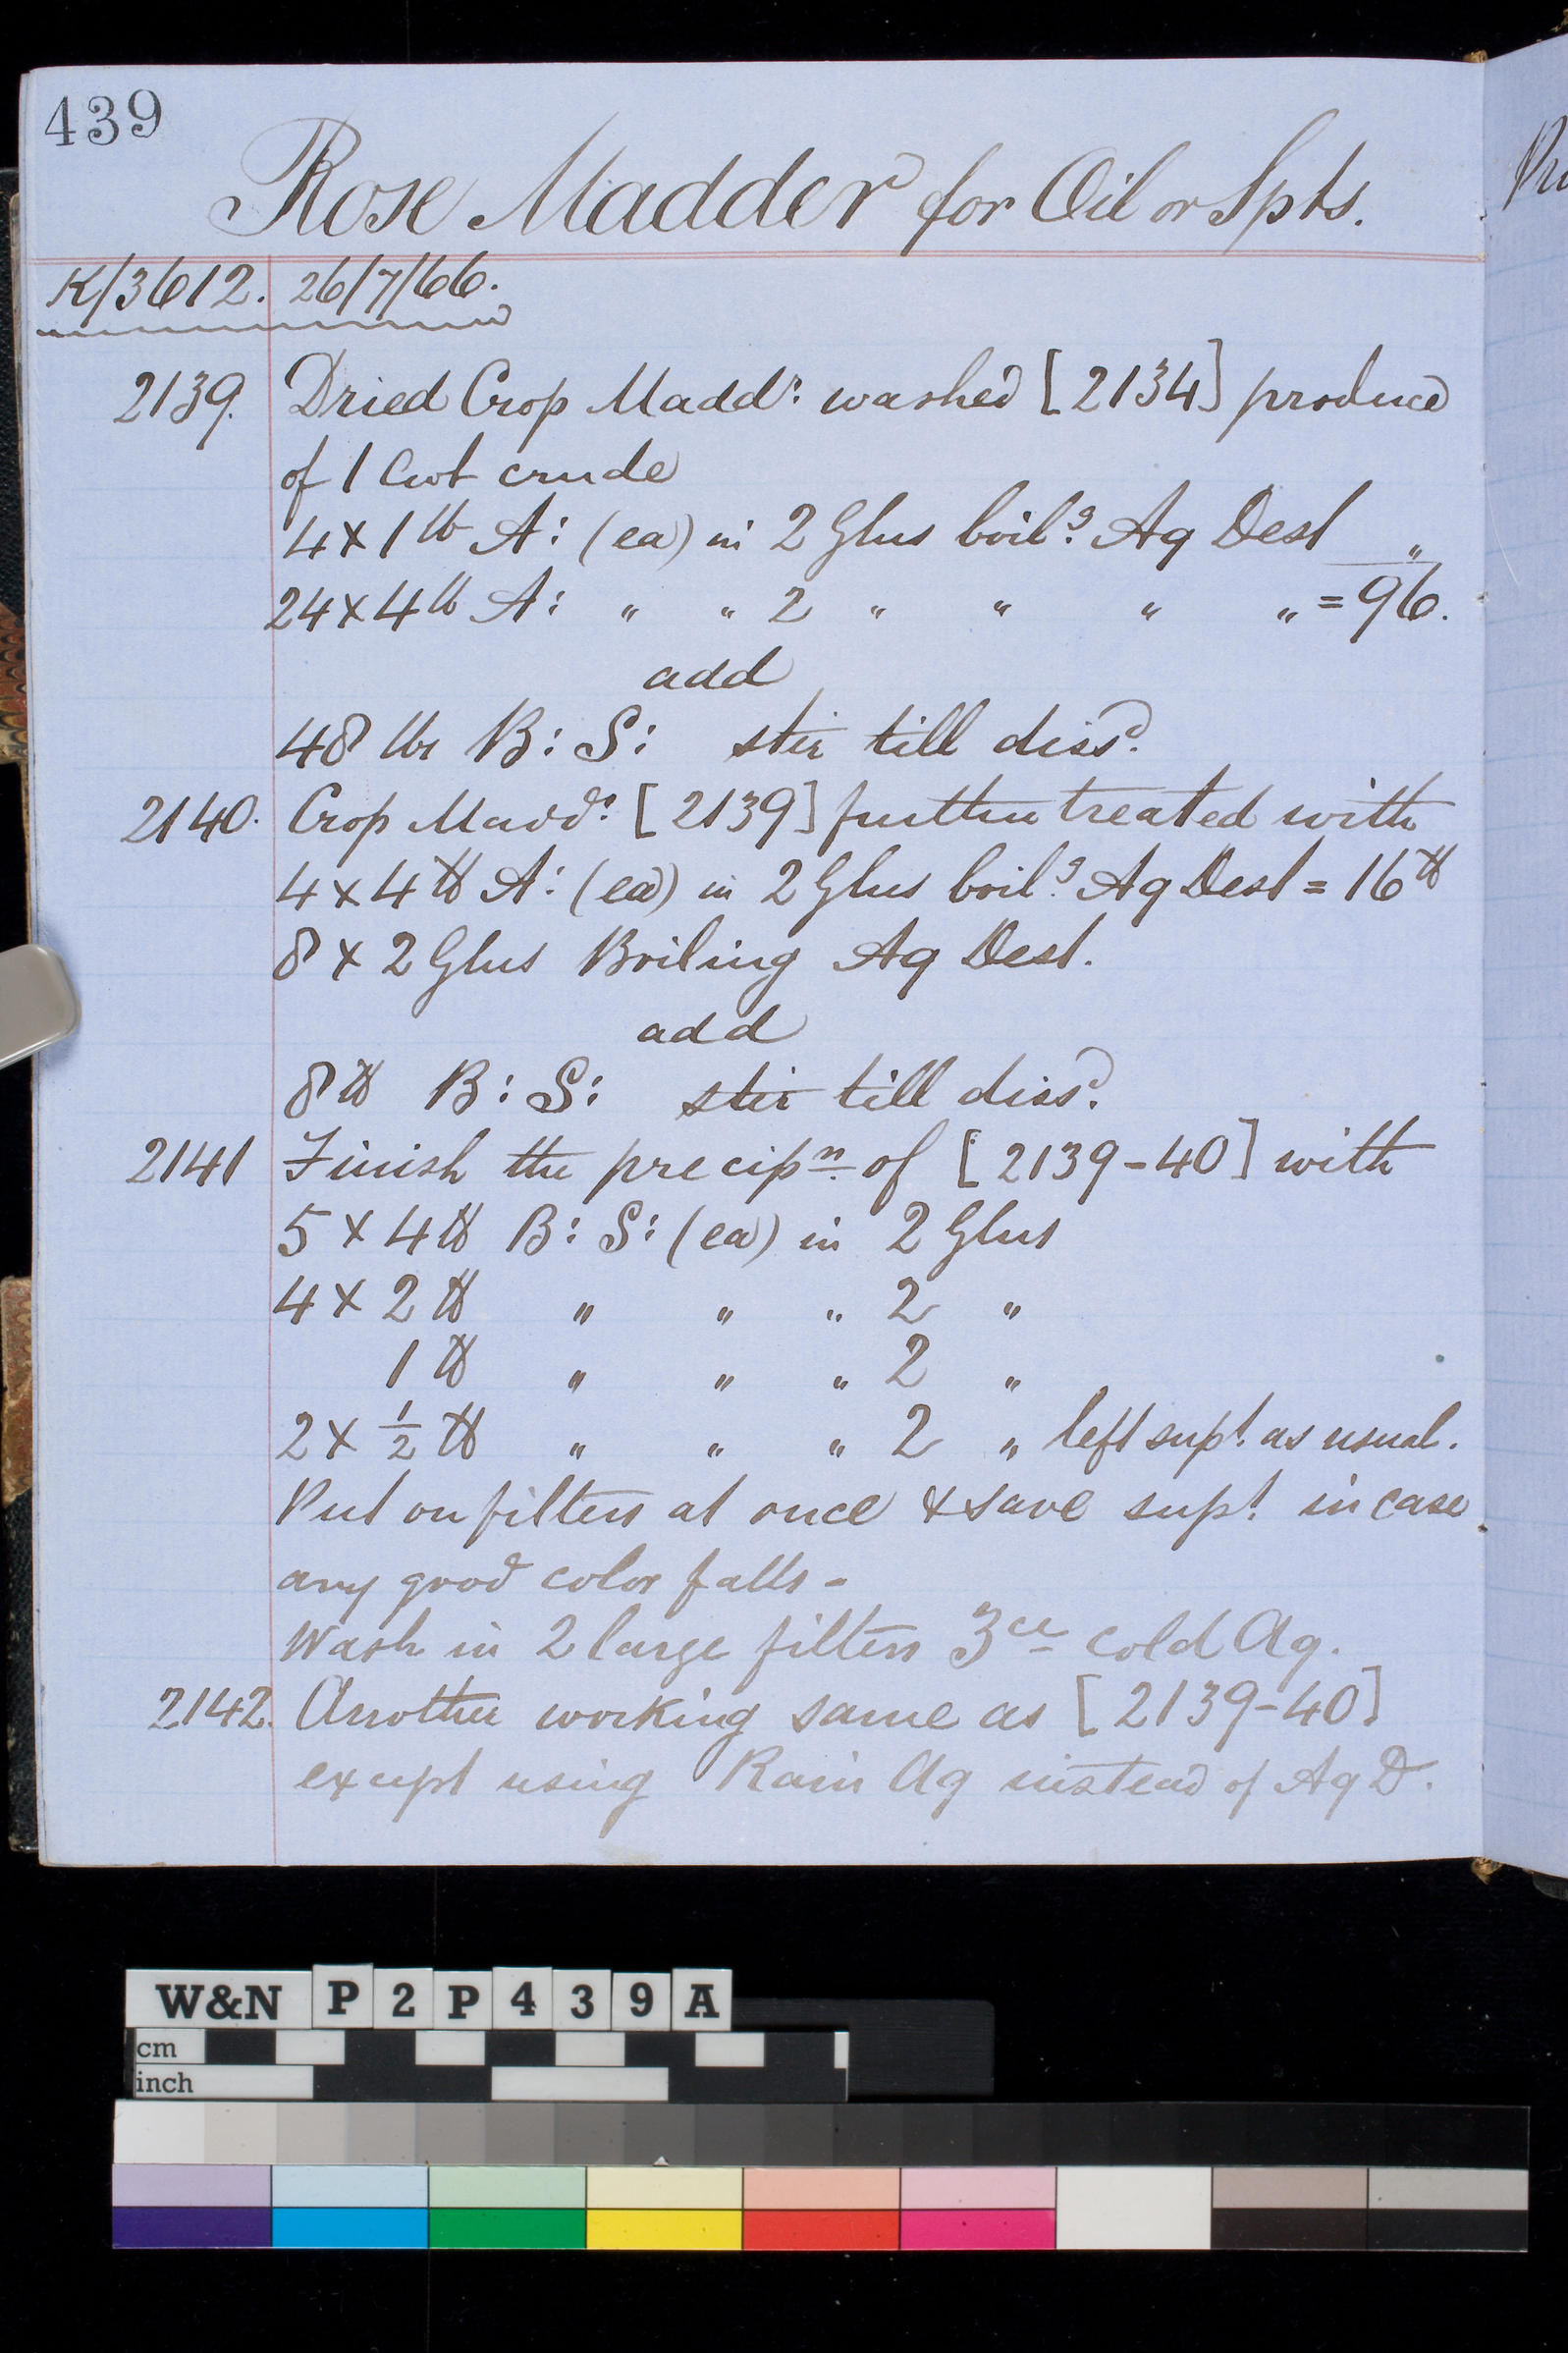 439
Rose Madder for Oil or Spts.
K/3612. 26/7/66.
2139. Dried Crop Maddr: washed [2134] produce
of 1 Cwt crude
4 x 1 lb A: (ea) in 2 Glns boilg: Aq Dest „
24 x 4 lb A: „ „ 2 „ „ „ „ = 96.
add
48 lbs B: S: stir till dissd.
2140. Crop Maddr: [2139] further treated with
4 x 4 lb A: (ea) in 2 Glns boilg: Aq Dest = 16 lb
8 x 2 Glns Boiling Aq Dest.
add
8 lb B: S: stir till dissd.
2141 Finish the precipn of [2139-40] with
5 x 4 lb B: S: (ea) in 2 Glns
4 x 2 lb „ „ „ 2 „
1 lb „ „ „ 2 „
2 x 1/2 lb „ „ „ 2 „ left supt. as usual.
Put on filters at once & save supt. in case
any good color falls -
Wash in 2 large filters 3ce cold Aq.
2142. Another working same as [2139-40]
except using Rain Aq instead of Aq D.
W&N P2P439A
cm
inch